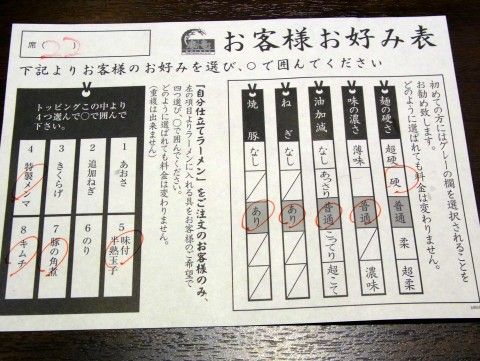 席( 22 )
お客様お好み表
下記よりお客様のお好みを選び、○で囲んでください
初めての方にはグレーの欄を選択されることを
お勧め致します。
どのように選ばれても料金は変わりません。
麺の硬さ 超硬 硬 普通 柔 超柔
味の濃さ 薄味 普通 濃味
油加減 なし あっさり 普通 こってり 超こて
ねぎ なし あり
焼豚 なし あり
「自分仕立てラーメン」をご注文のお客様のみ、
左の項目よりラーメンに入れる具をお客様のご希望で
四つ選び、○で囲んでください。
どのように選ばれても料金は変わりません。
(重複は出来ません)
トッピングこの中より
4つ選んで○で囲んで
下さい。
1 あおさ
2 追加ねぎ
3 きくらげ
4 特製メンマ
5 味付半熟玉子
6 のり
7 豚の角煮
8 キムチ